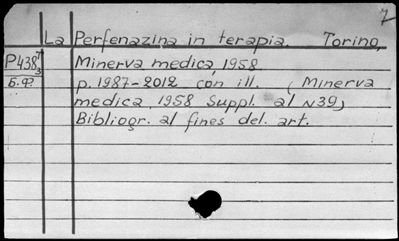 7
La Perfenazina in terapia. Torino,
P438 7/3 Minerva medica, 1958
Б.Ф. p. 1987-2012 con ill. (Minerva
medica, 1958 Suppl. al N39)
Bibliogr. al fines del. art.